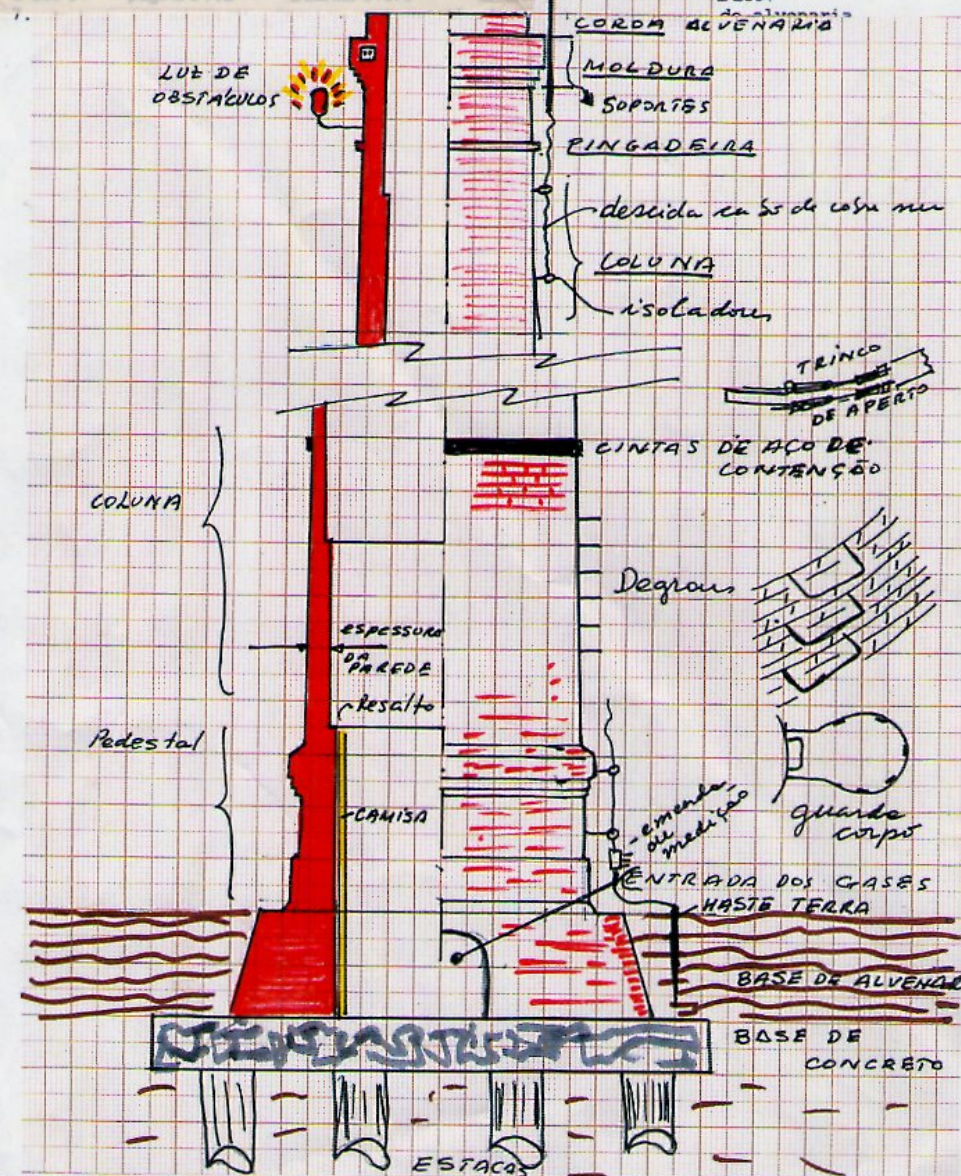 de alvenaria
COROA ALVENARIA
LUZ DE
OBSTÁCULOS
MOLDURA
SOPORTES
PINGADEIRA
descida cabo de cobre nu
COLUNA
isoladores
TRINCO
DE APERTO
CINTAS DE AÇO DE
CONTENÇÃO
COLUNA
Degraus
ESPESSURA
DA
PAREDE
Resalto
Pedestal
CAMISA
emenda
de
medição
guarda
corpo
ENTRADA DOS GASES
HASTE TERRA
BASE DE ALVENAR
BASE DE
CONCRETO
ESTACAS